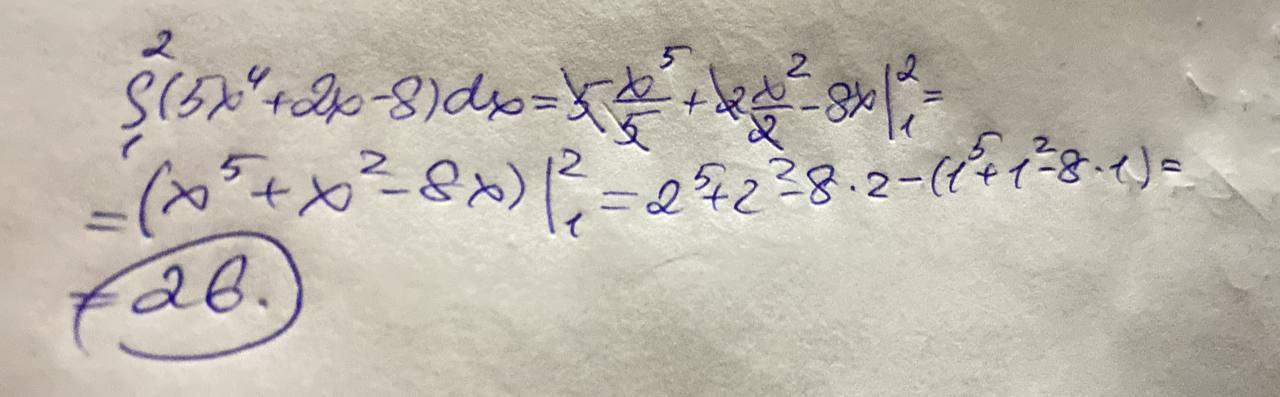 ∫₁²(5x⁴+2x-8)dx=5x⁵/5+2x²/2-8x|₁²=
=(x⁵+x²-8x)|₁²=2⁵+2²-8·2-(1⁵+1²-8·1)=
=26.